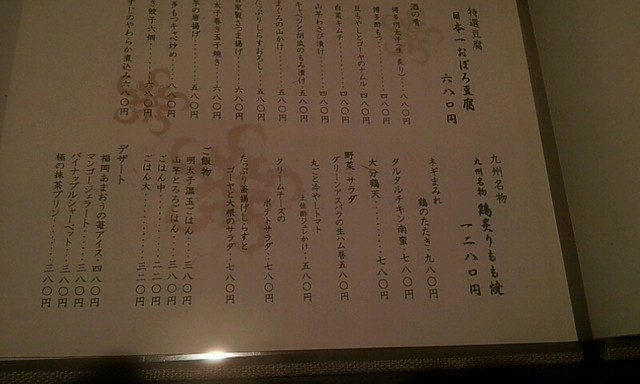 特選豆腐
日本一おぼろ豆腐
六八〇円
酒の肴
博多明太子(生・炙り)‥八八〇円
博多酢もつ‥‥四八〇円
豆もやしとゴーヤのナムル‥四八〇円
白菜キムチ‥‥四八〇円
山芋わさび漬け‥‥四八〇円
キャベツと胡瓜のもみ漬け‥四八〇円
まぐろの山かけ‥‥五八〇円
たっぷりしらすおろし‥五八〇円
家製さつま揚げ‥‥六八〇円
太子巻き玉子焼き‥六八〇円
芋の唐揚げ‥‥五八〇円
多もつキャベ炒め‥八八〇円
き餃子六個‥‥六八〇円
すじのやわらか煮込み六八〇円
九州名物
九州名物 鶏炙りもも焼
一二八〇円
ネギまみれ
鶏のたたき‥九八〇円
タルタルチキン南蛮‥七八〇円
大分鶏天‥‥七八〇円
野菜・サラダ
グリーンアスパラの生ハム巻五八〇円
丸ごと冷やしトマト
土佐酢ジュレかけ‥五八〇円
クリームチーズの
ポテトサラダ‥七八〇円
たっぷり釜揚げしらすと
ゴーヤと大根のサラダ‥七八〇円
ご飯物
明太子温玉ごはん‥三八〇円
山芋とろろごはん‥三八〇円
ごはん中‥‥二二〇円
ごはん大‥‥三二〇円
デザート
福岡あまおうの苺アイス‥四八〇円
マンゴージェラート‥‥三八〇円
パイナップルシャーベット‥三八〇円
極の抹茶プリン‥‥三八〇円